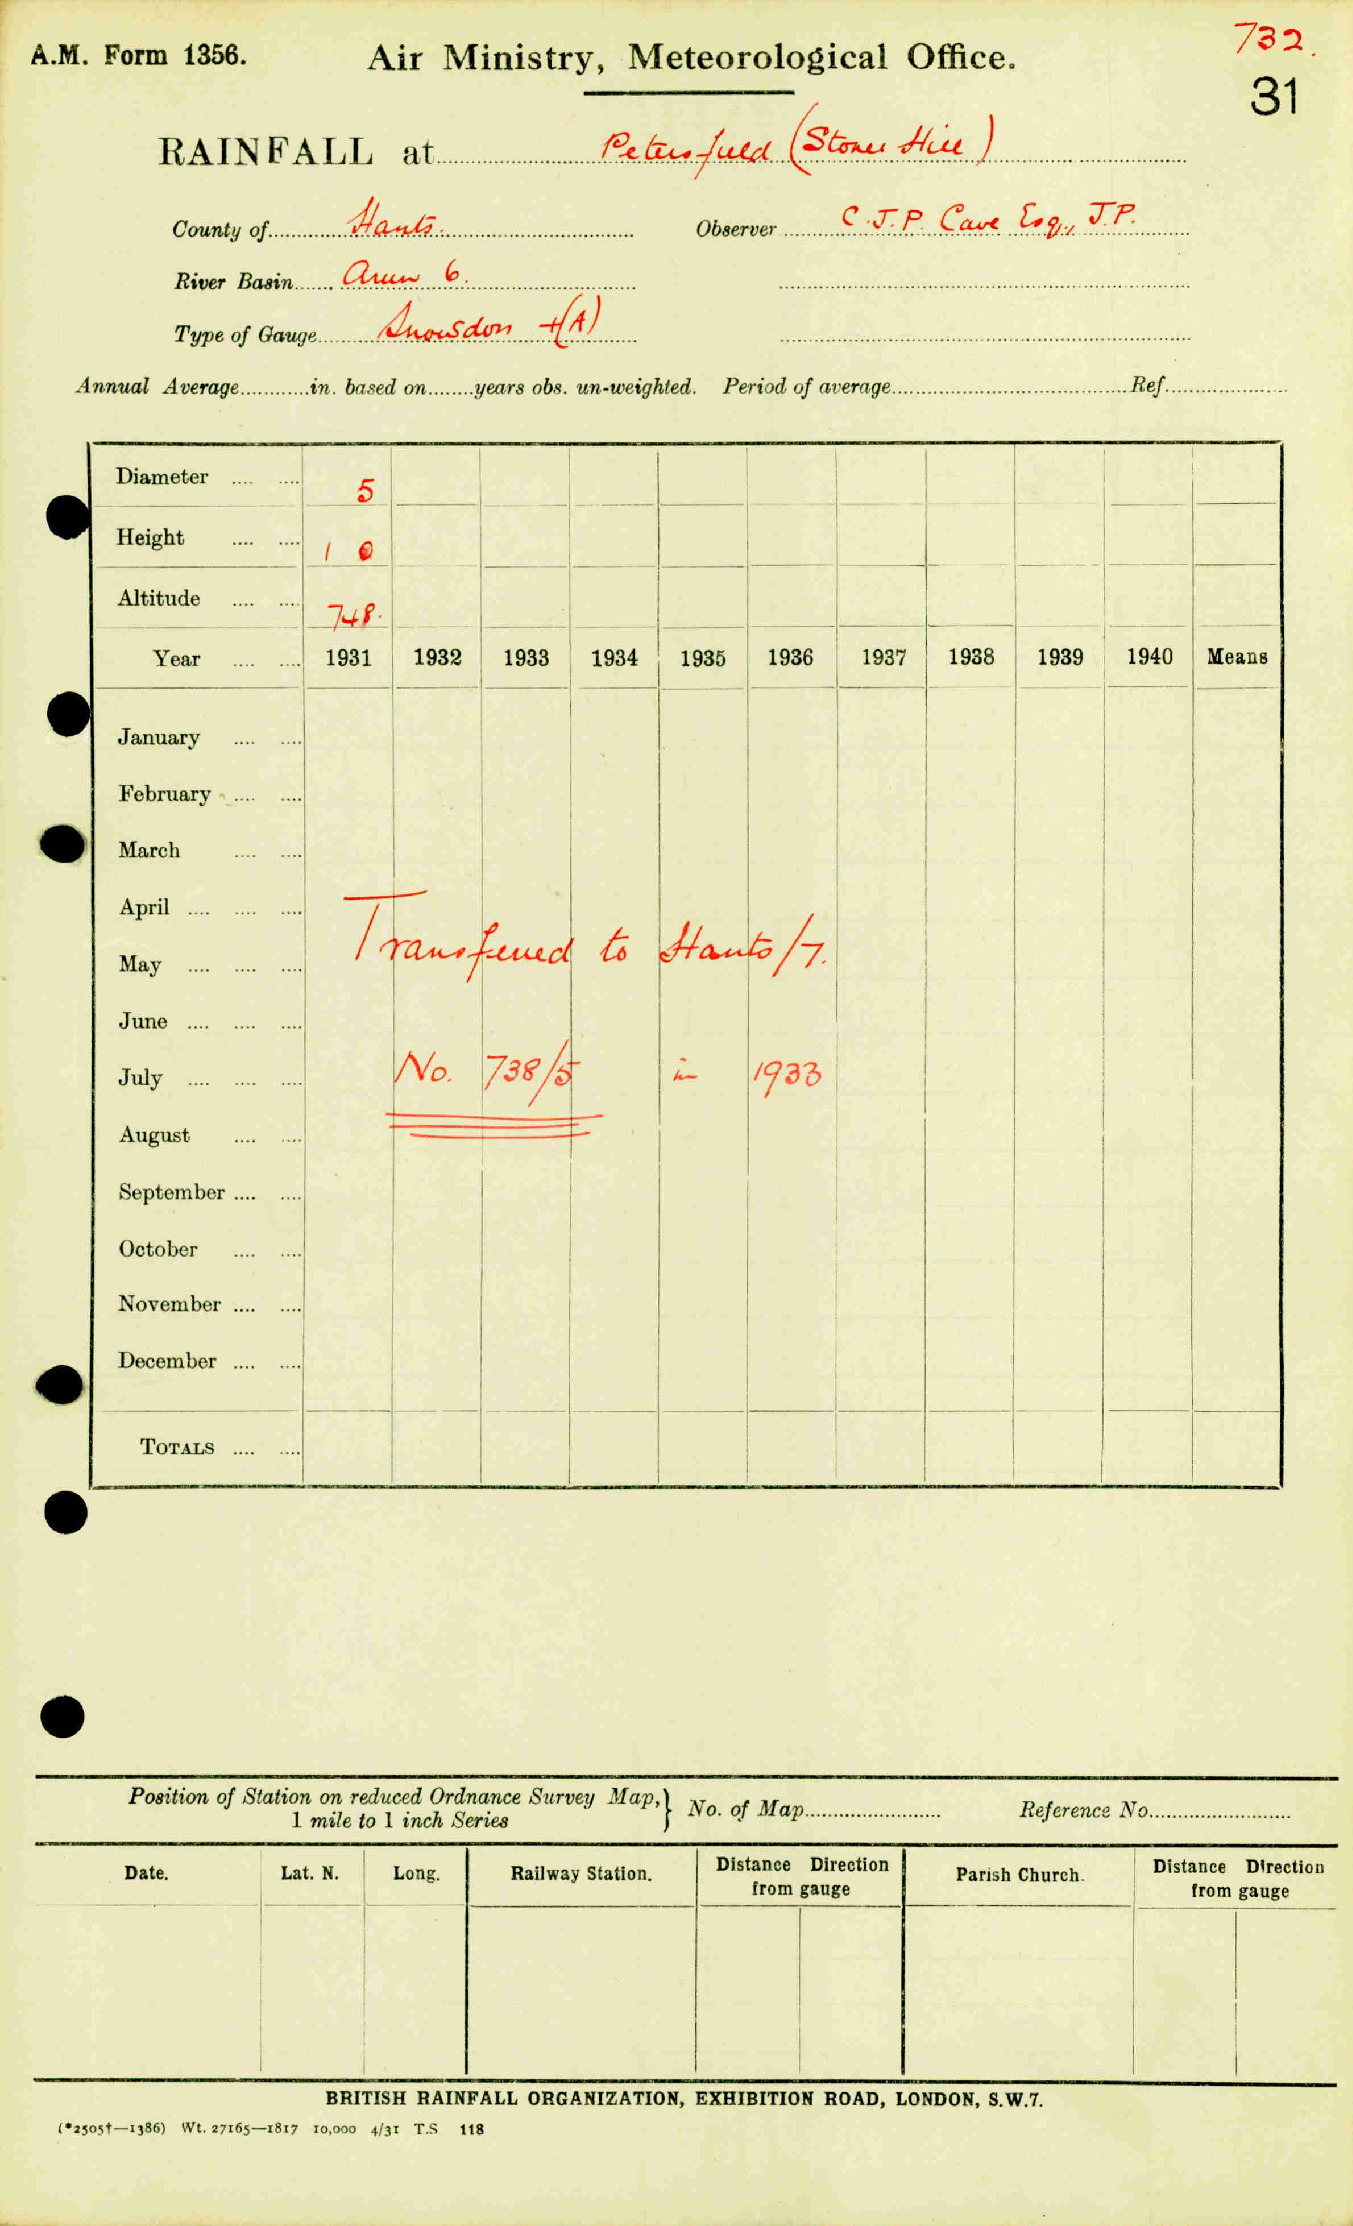 732.
A.M. Form 1356. Air Ministry, Meteorological Office.
31
RAINFALL at Petersfield (Stoner Hill)
County of Hants. Observer C.J.P. Cave Esq., J.P.
River Basin Arun 6.
Type of Gauge Snowdon +(A)
Annual Average in. based on years obs. un-weighted. Period of average Ref.
Diameter 5
Height 1 0
Altitude 748.
Year 1931 1932 1933 1934 1935 1936 1937 1938 1939 1940 Means
January
February
March
April
Transferred to Hants/7.
May
June
July No. 738/5 in 1933
August
September
October
November
December
TOTALS
Position of Station on reduced Ordnance Survey Map, } No. of Map Reference No.
1 mile to 1 inch Series
Date. Lat. N. Long. Railway Station. Distance Direction from gauge Parish Church. Distance Direction from gauge
BRITISH RAINFALL ORGANIZATION, EXHIBITION ROAD, LONDON, S.W.7.
(*2505†—1386) Wt. 27165—1817 10,000 4/31 T.S 118